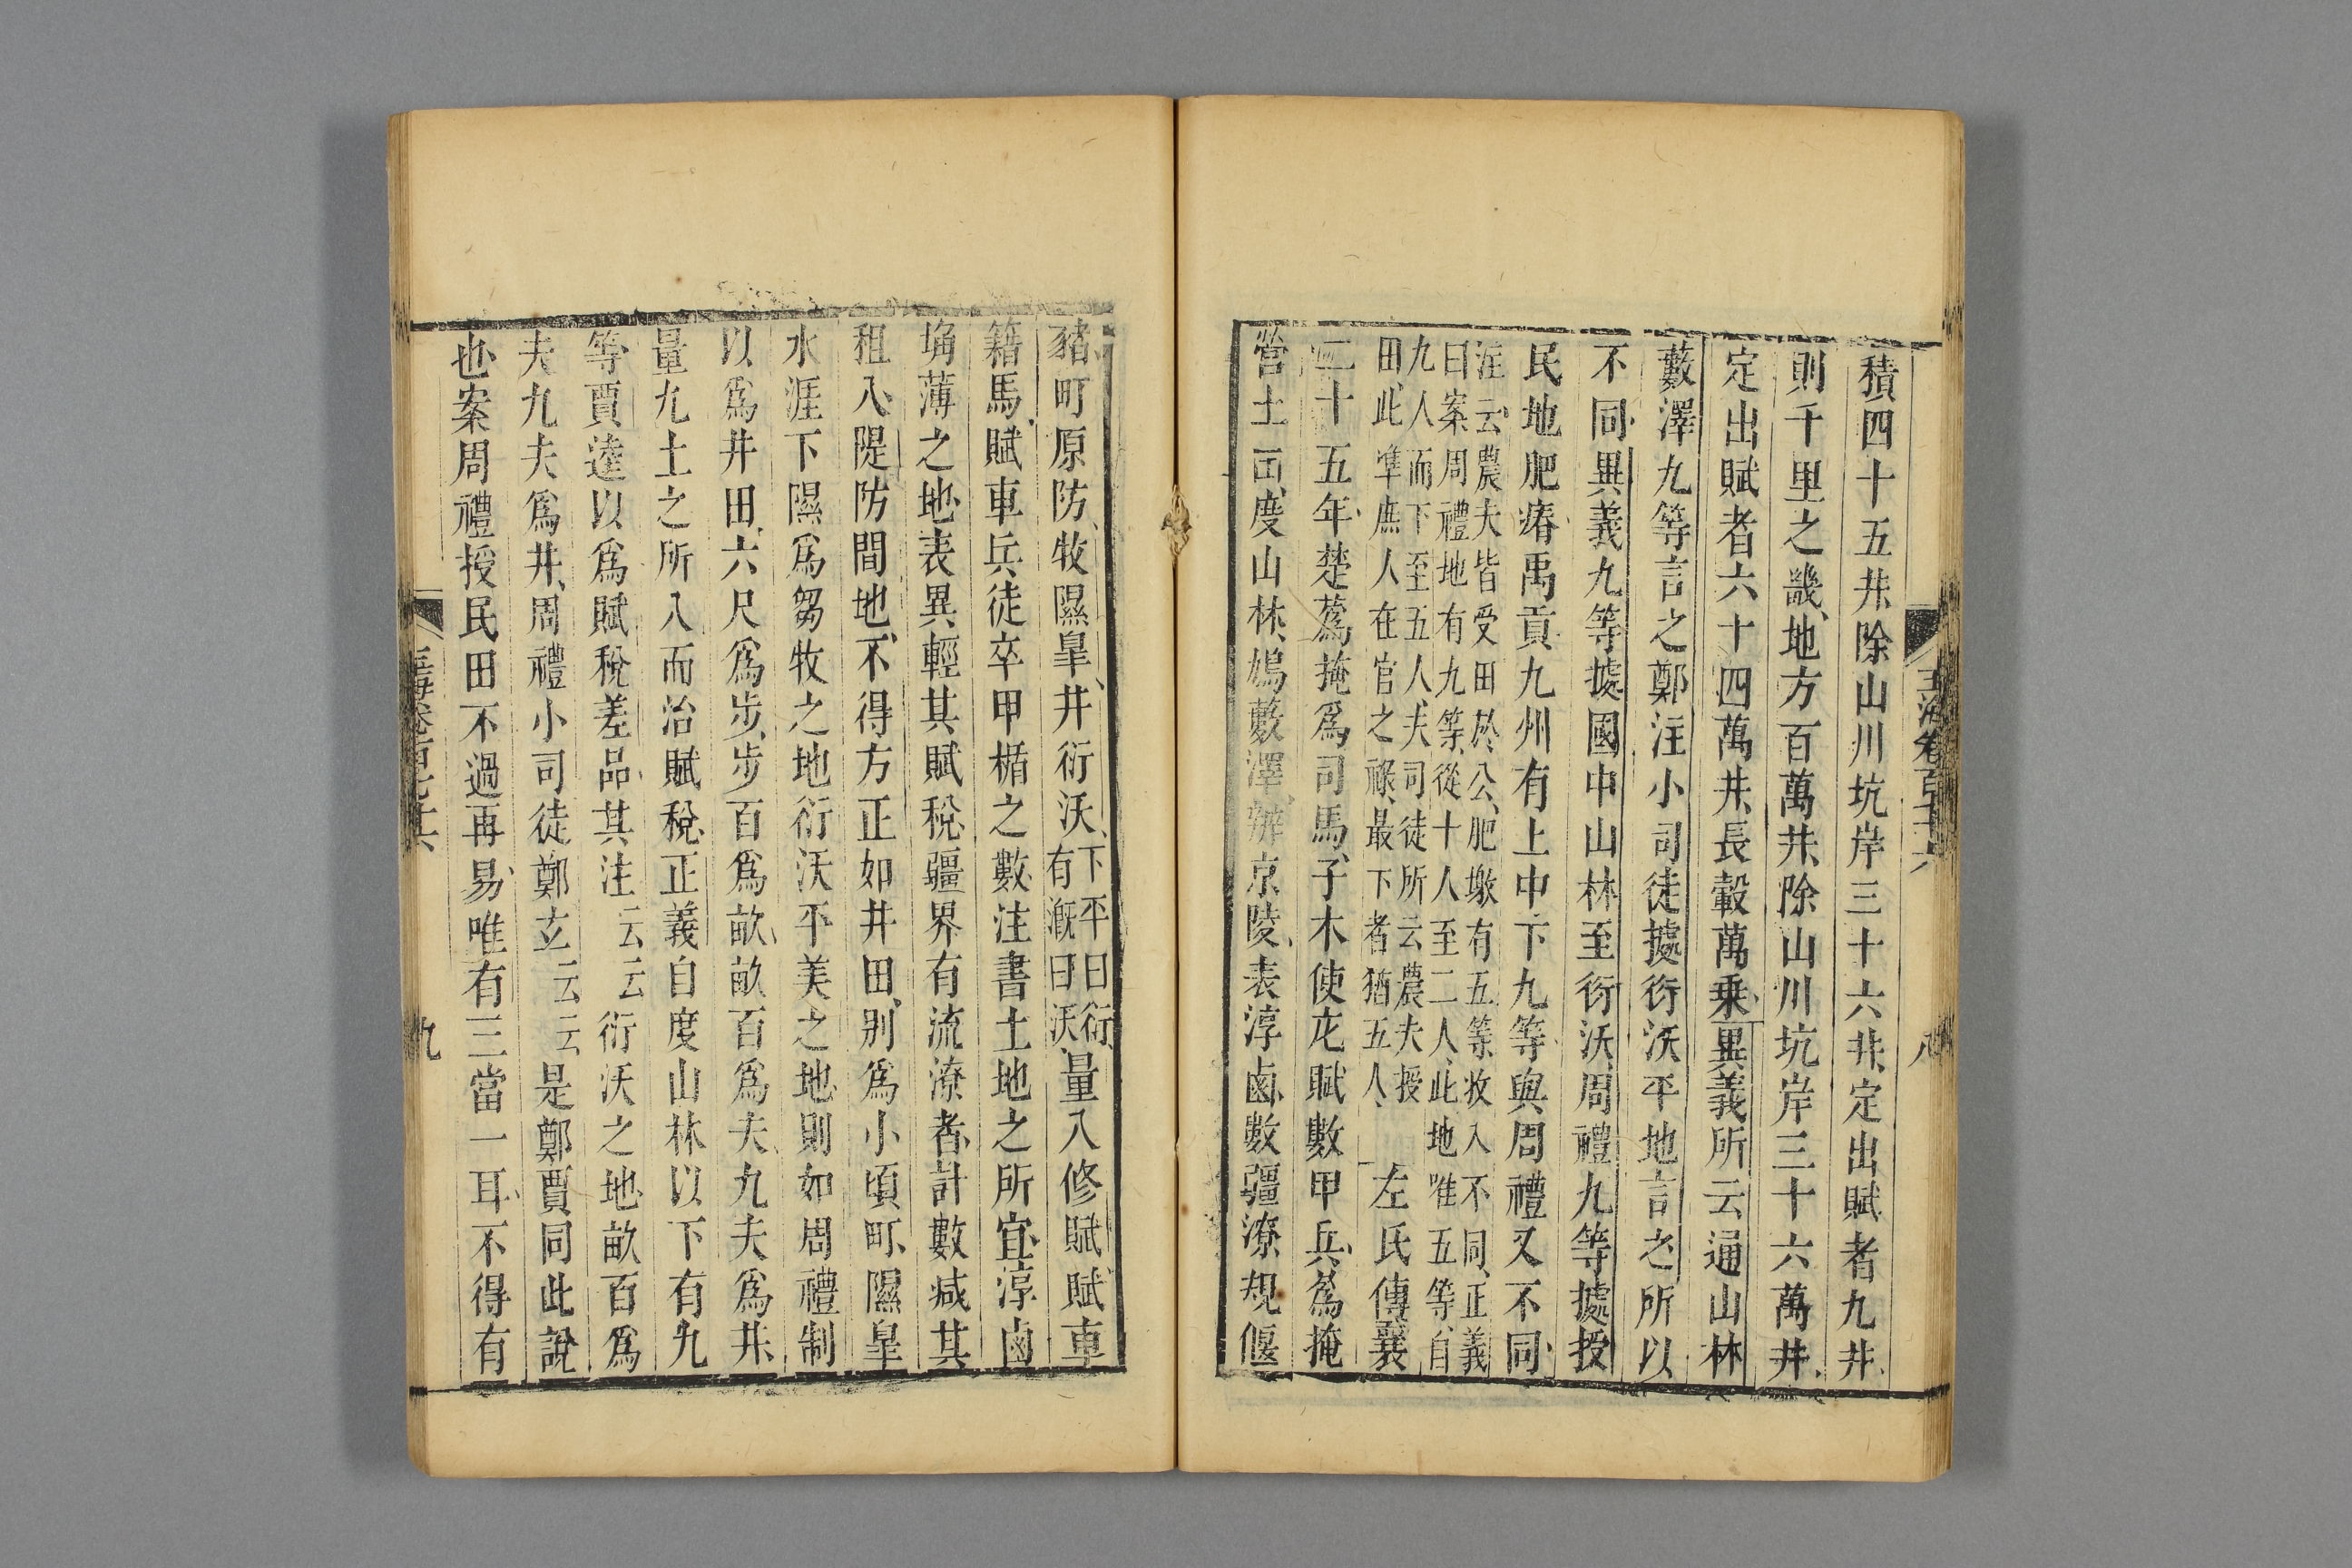 積四十五井、除山川坑岸三十六井、定出賦者九井、
則千里之畿、地方百萬井、除山川坑岸三十六萬井、
定出賦者六十四萬井、長轂萬乗、異義所云通山林
藪澤九等言之鄭注小司徒據衍沃平地言之所以
不同、異義九等據國中山林至衍沃、周禮九等據授
民地肥瘠、禹貢九州有上中下九等、與周禮又不同、
注云、農夫皆受田於公、肥墩有五等、收入不同、正義
曰案周禮地有九等、從十人至二人、此地唯五等、自
九人而下至五人、夫司徒所云農夫授
田、此準庶人在官之祿、最下者猶五人、
左氏傳襄
二十五年、楚蒍掩爲司馬、子木使庀賦數甲兵、蒍掩
營土田、度山林、鳩藪澤、辨京陵、表淳鹵、數疆潦、規偃
玉海卷百七十六
八
豬、町原防、牧隰臯、井衍沃、
下平曰衍、
有漑曰沃、
量入修賦、賦車
籍馬、賦車兵徒卒甲楯之數、注書土地之所宜、淳鹵
埆薄之地、表異輕其賦稅、疆界有流潦者、計數減其
租入、隄防間地、不得方正如井田、別爲小頃町、隰臯
水涯下隰爲芻牧之地、衍沃平美之地、則如周禮制
以爲井田、六尺爲步、步百爲畝、畝百爲夫、九夫爲井、
量九土之所入而治賦稅、正義自度山林以下有九
等、賈逵以爲賦稅差品、其注云云衍沃之地、畝百爲
夫、九夫爲井、周禮小司徒鄭玄云云是鄭賈同此說
也、案周禮授民田不過再易、唯有三當一耳、不得有
玉海卷百七十六
九